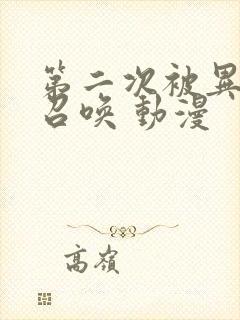 第二次被異
召喚 動漫
高嶺